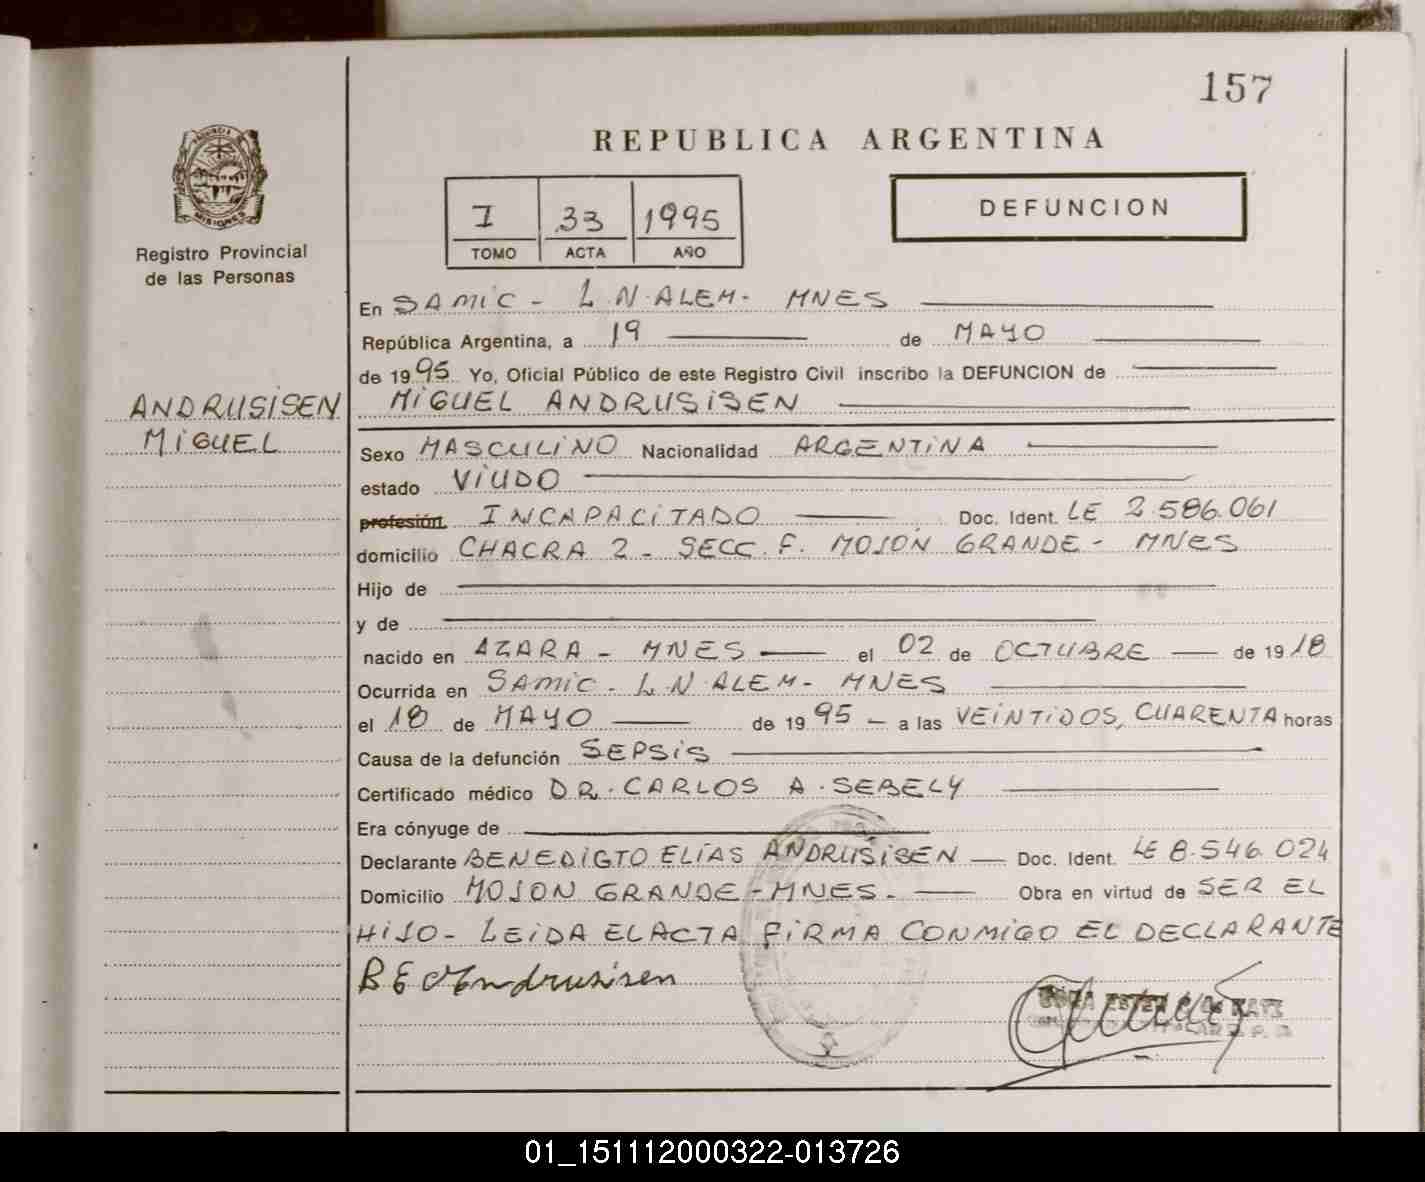 157
REPUBLICA ARGENTINA
DEFUNCION
I 33 1995
TOMO ACTA AÑO
MISIONES
Registro Provincial
de las Personas
ANDRUSISEN
MIGUEL
En SAMIC - L.N. ALEM - MNES
República Argentina, a 19 de MAYO
de 1995 Yo, Oficial Público de este Registro Civil inscribo la DEFUNCION de
MIGUEL ANDRUSISEN
Sexo MASCULINO Nacionalidad ARGENTINA
estado VIUDO
profesión INCAPACITADO Doc. Ident. LE 2.586.061
domicilio CHACRA 2 - SECC. F. MOJON GRANDE - MNES
Hijo de
y de
nacido en AZARA - MNES el 02 de OCTUBRE de 1918
Ocurrida en SAMIC - L.N. ALEM - MNES
el 18 de MAYO de 1995 - a las VEINTIDOS, CUARENTA horas
Causa de la defunción SEPSIS
Certificado médico DR. CARLOS A. SEBELY
Era cónyuge de
Declarante BENEDIGTO ELIAS ANDRUSISEN Doc. Ident. LE 8.546.024
Domicilio MOJON GRANDE - MNES - Obra en virtud de SER EL
HIJO - LEIDA EL ACTA FIRMA CONMIGO EL DECLARANTE
B E Andrusisen
01_151112000322-013726